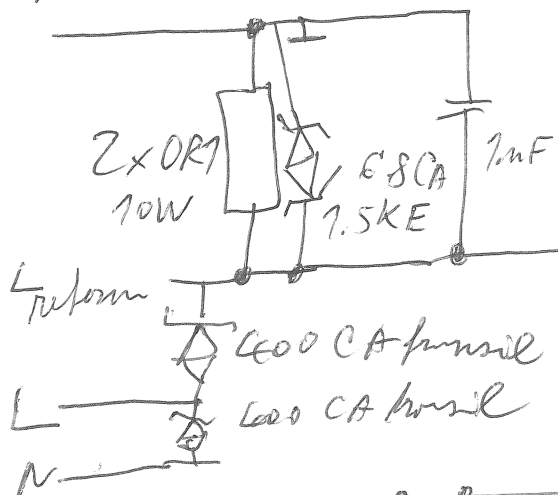 2x0R1
10W
6.8CA
1.5KE
1nF
L return
400 CA transil
L
400 CA transil
N